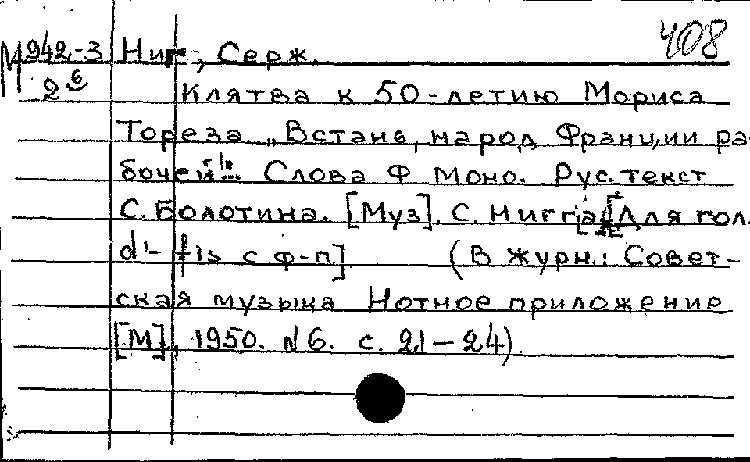 408
М 942-3 Ниг, Серж.
2б Клятва к 50-летию Мориса
Тореза „Встань, народ Франции ра-
бочей!"... Слова Ф Моно. Рус. текст
С. Болотина. [Муз]. С. Нигга [Для гол.
d¹- fis с ф-п] (В журн.: Совет-
ская музыка Нотное приложение
[М], 1950. №6. с. 21-24)